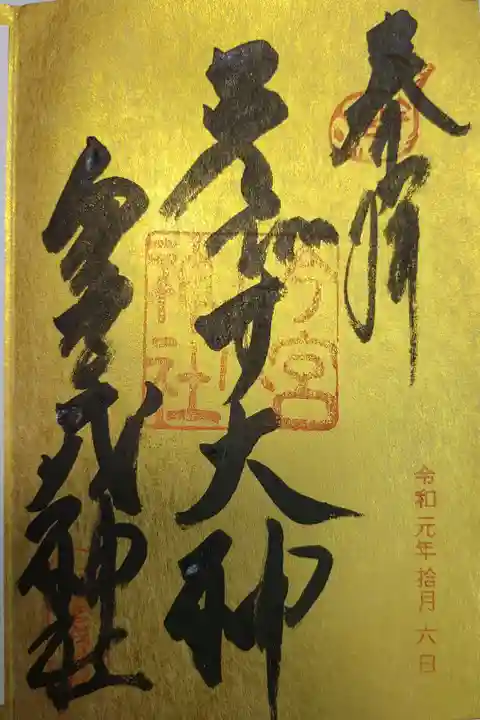 奉拝
ゑびす大神
戎神社
今宮
神社
令和元年拾月六日